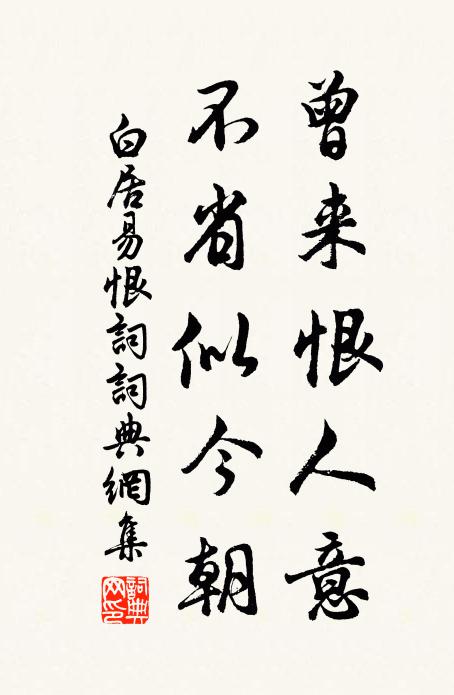 曾来恨人意
不省似今朝
白居易恨詞詞典網集
詞典网印